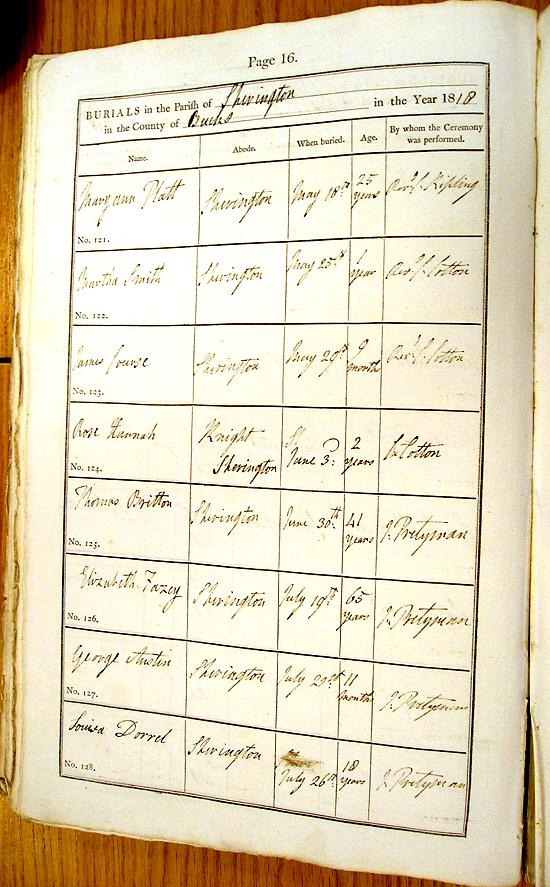 Page 16.
BURIALS in the Parish of Sherington
in the County of Bucks in the Year 1818
Name. Abode. When buried. Age. By whom the Ceremony was performed.
Maryann Platt Sherington May 18th 25 years Revd J. Kipling
No. 121.
Martha Smith Sherington May 25th 1 year Revd J. Cotton
No. 122.
James Course Sherington May 29th 9 month Revd J. Cotton
No. 123.
Rose Hannah Knight
Sherington June 3d: 2 years Cotton
No. 124.
Thomas Britton Sherington June 30th 41 years J. Pretyman
No. 125.
Elizabeth Fazey Sherington July 19th 65 years J. Pretyman
No. 126.
George Austin Sherington July 11 months J. Pretyman
No. 127.
Louisa Dorrel Sherington July 26th 18 years J. Pretyman
No. 128.